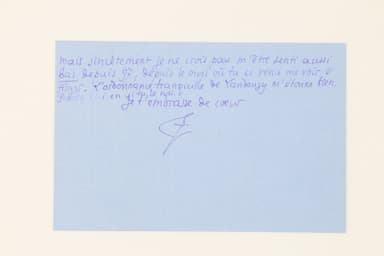 mais simplement je ne crois pas m'être senti aussi
bas depuis 97, depuis le mois où tu es venu me voir à
Alger. L'ordonnance tranquille de m'étonne bien.
en
Je t'embrasse de cœur